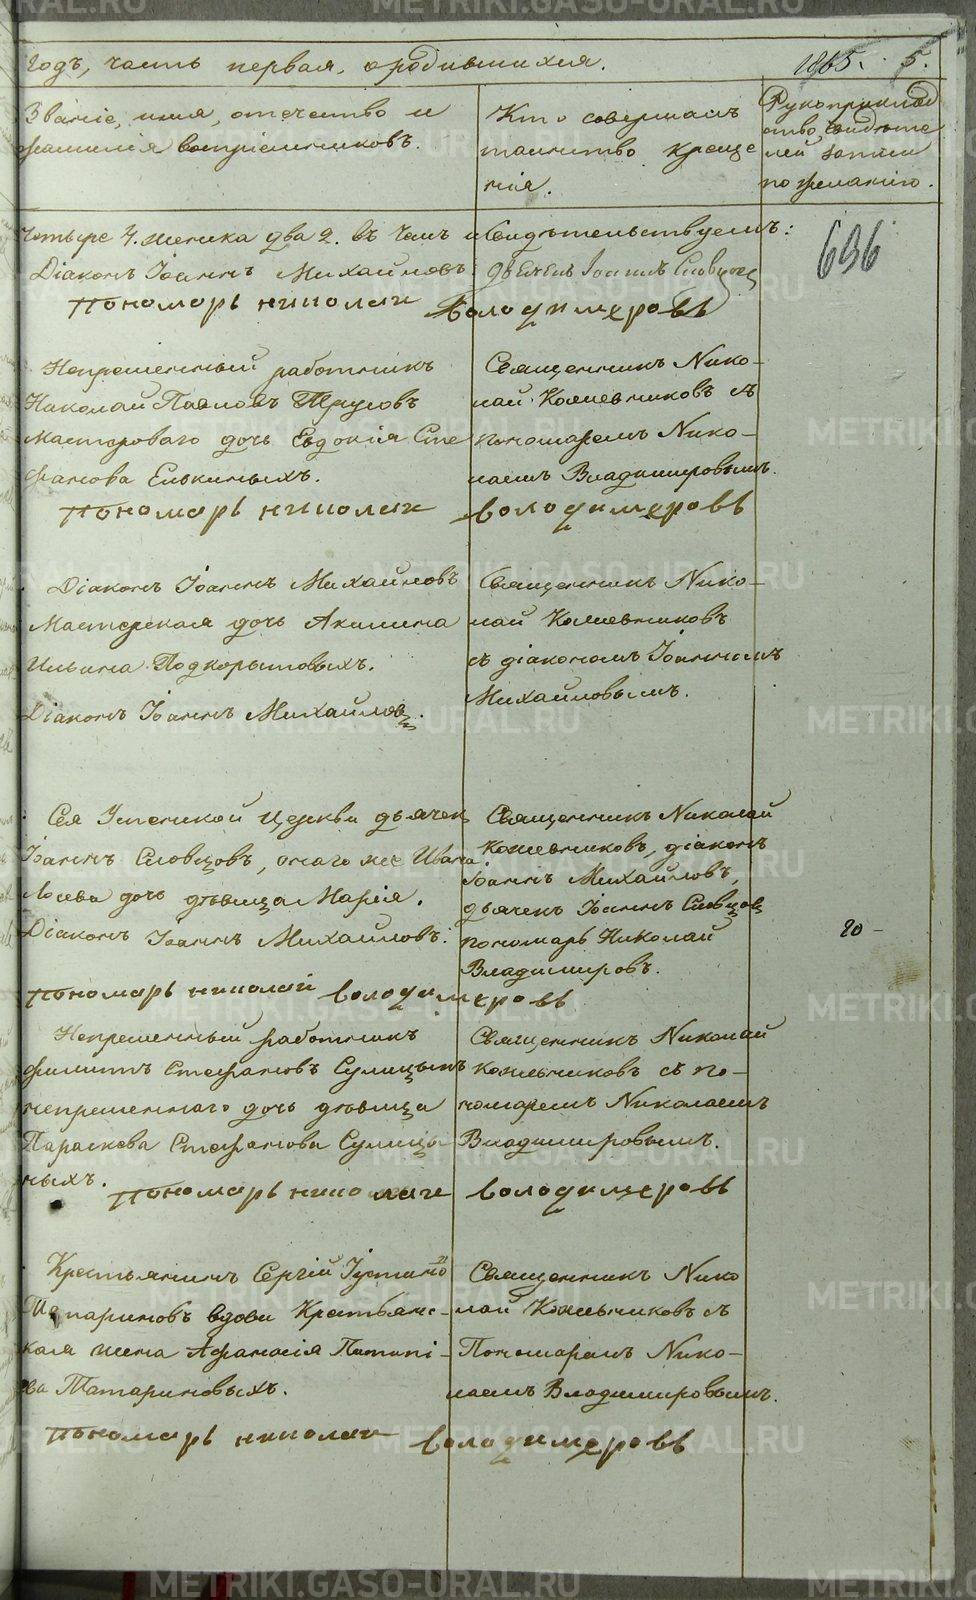 Годъ, часть первая, о родившихся. 1865. 5.
Званіе, имя, отечество и
фамилія воспріемниковъ.
Кто совершалъ
таинство креще
нія.
Рукоприклад
ство свидѣте
лей записи
по желанію.
Четыре 4. женска два 2. въ чемъ и свидѣтельствуемъ:
Діаконъ Іоаннъ Михайловъ дьячекъ Іоаннъ Словцовъ
пономарь николаи володимеровъ
696
Непременный работникъ
Николай Павловъ Трусовъ
мастероваго дочь Евдокія Сте
фанова Елькиныхъ.
Священникъ Нико-
лай Кожевниковъ съ
пономаремъ Нико-
лаемъ Владимировымъ.
пономарь николаи володимеровъ
Діаконъ Іоаннъ Михайловъ
Мастерская дочь Акилина
Ильина Подкорытовыхъ.
Діаконъ Іоаннъ Михайловъ.
Священникъ Нико-
лай Кожевниковъ
съ діакономъ Іоанномъ
Михайловымъ.
Сея Успенской церкви дьячекъ
Іоаннъ Словцовъ, онаго же Ивана
Лосева дочь дѣвица Марія.
Діаконъ Іоаннъ Михайловъ.
Священникъ Николай
Кожевниковъ, діаконъ
Іоаннъ Михайловъ,
дьячекъ Іоаннъ Словцовъ
пономарь Николай
Владимировъ.
20 -
пономарь николай володимеровъ
Непременный работникъ
Филиппъ Стефановъ Сулицынъ
непременнаго дочь дѣвица
Параскева Стефанова Сулицы
ныхъ.
Священникъ Николай
Кожевниковъ съ по-
номаремъ Николаемъ
Владимировымъ.
пономарь николаи володимеровъ
Крестьянинъ Сергій Іустиновъ
Татариновъ вдова Крестьянс-
кая жена Афанасія Потапі-
ева Татариновыхъ.
Священникъ Нико
лай Кожевниковъ съ
Пономаремъ Нико-
лаемъ Владимировымъ.
пономарь николаи володимеровъ
METRIKI.GASO-URAL.RU